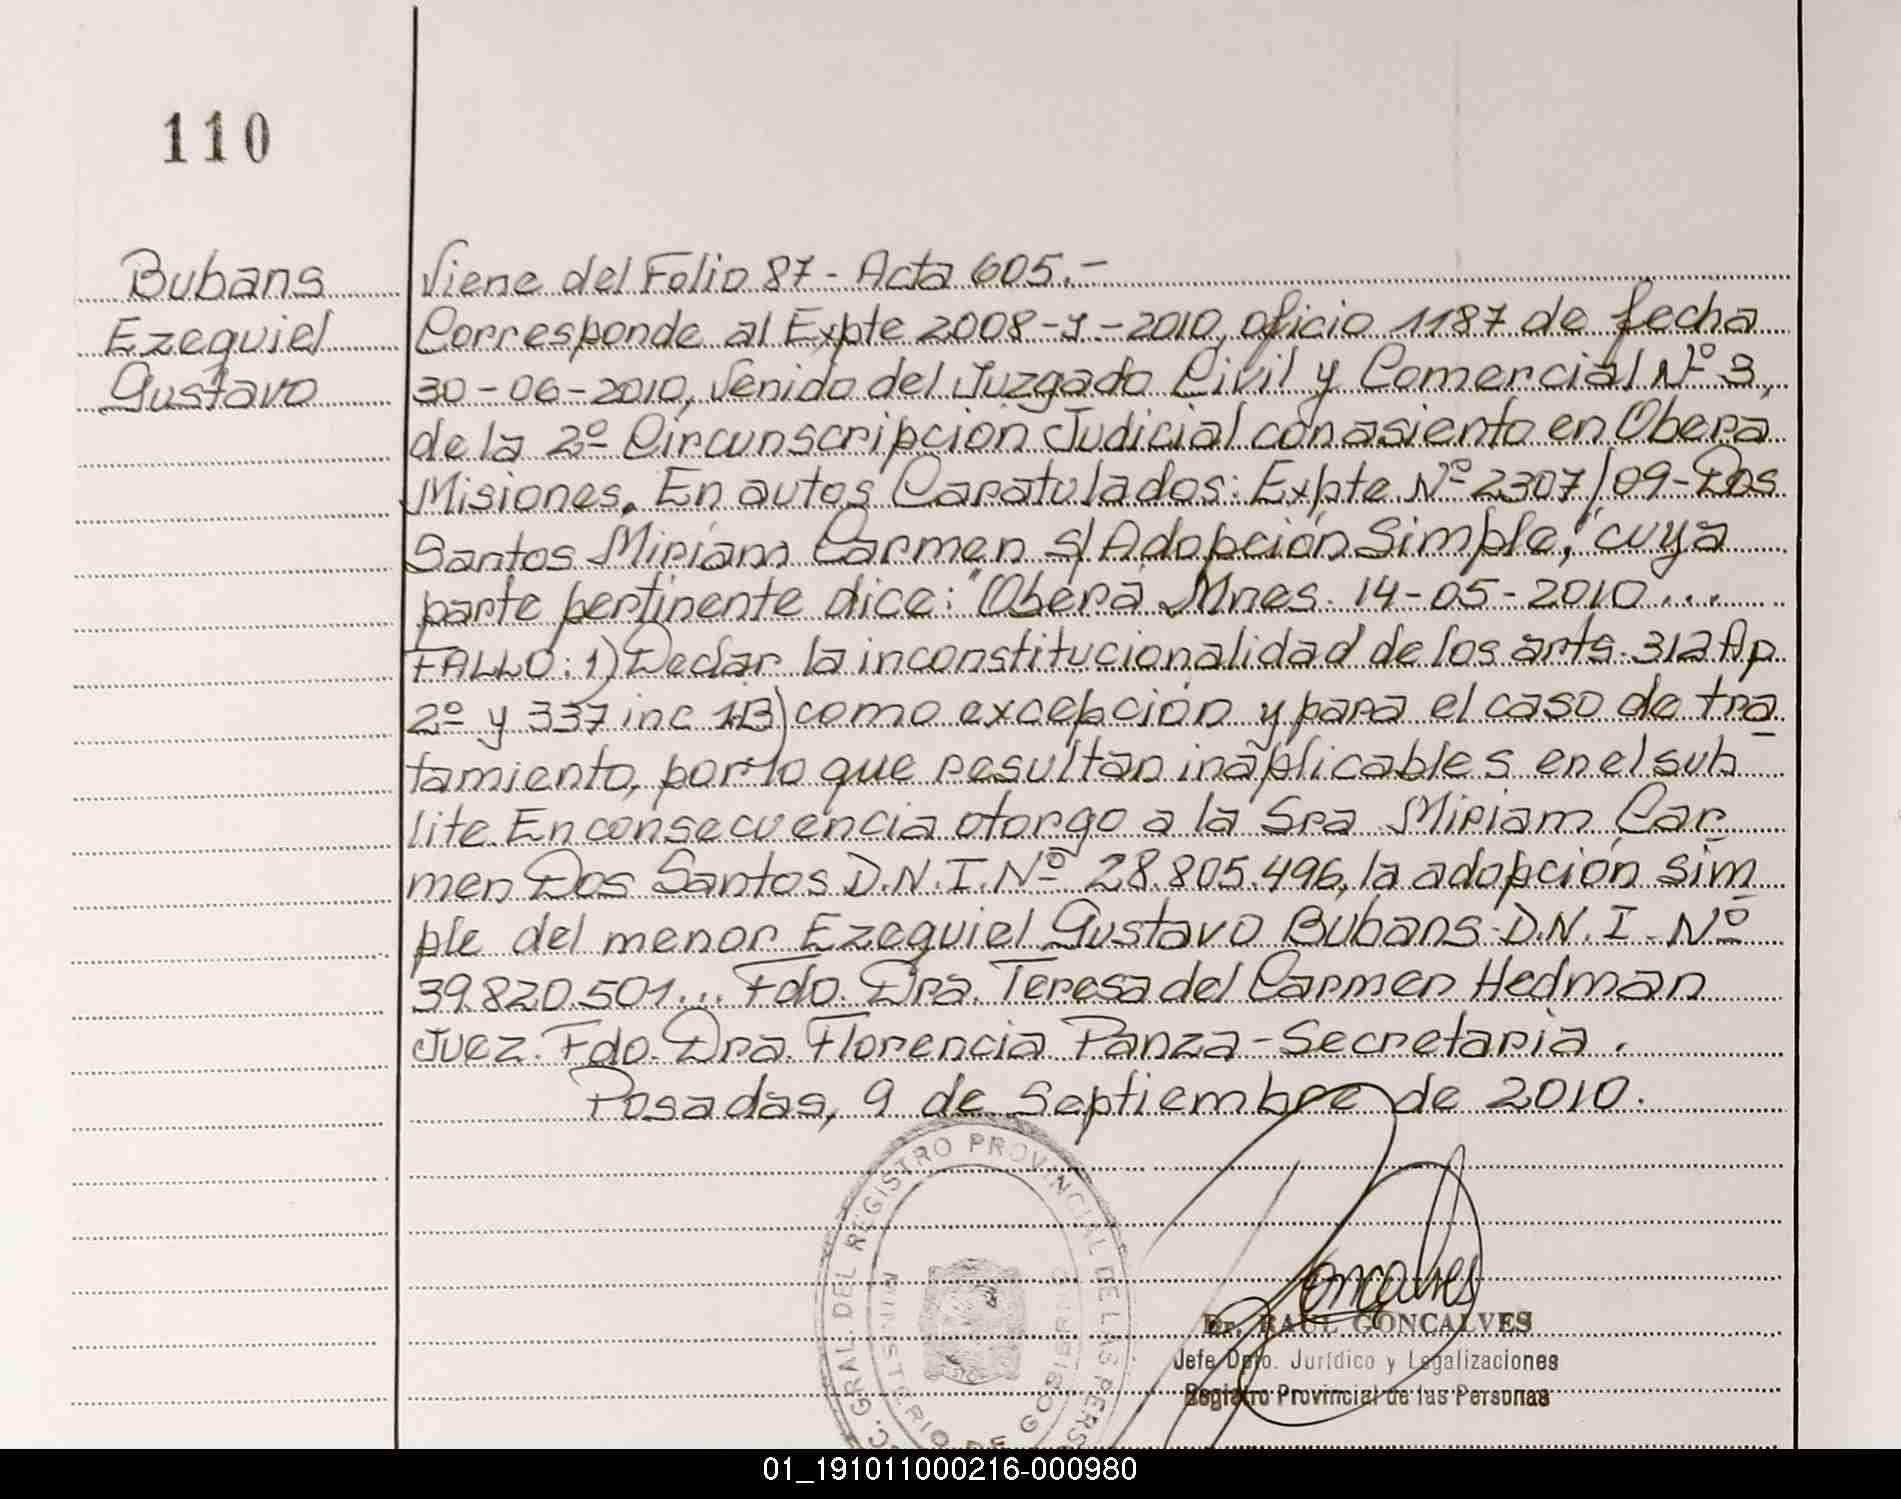 110
Bubans
Ezequiel
Gustavo
Viene del Folio 87 - Acta 605.-
Corresponde al Expte 2008-J-2010, oficio 1187 de fecha
30-06-2010, venido del Juzgado Civil y Comercial Nº 3,
de la 2º Circunscripción Judicial con asiento en Oberá
Misiones. En autos Caratulados: Expte Nº 2307/09-Dos
Santos Miriam Carmen s/ Adopción Simple," cuya
parte pertinente dice: "Oberá Mnes. 14-05-2010...
FALLO: 1) Declar la inconstitucionalidad de los arts. 312 Ap
2º y 337 inc 1-B) como excepción y para el caso de tra
tamiento, por lo que resultan inaplicables en el sub
lite. En consecuencia otorgo a la Sra Miriam Car
men Dos Santos D.N.I. Nº 28.805.496, la adopción sim
ple del menor Ezequiel Gustavo Bubans D.N.I. Nº
39.820.501... Fdo. Dra. Teresa del Carmen Hedman
Juez. Fdo. Dra. Florencia Panza-Secretaria.
Posadas, 9 de Septiembre de 2010.
C. GRAL. DEL REGISTRO PROVINCIAL DE LAS PERS
MINISTERIO DE GOBIERNO
Goncalves
Dr. RAUL GONCALVES
Jefe Dpto. Jurídico y Legalizaciones
Registro Provincial de las Personas
01_191011000216-000980